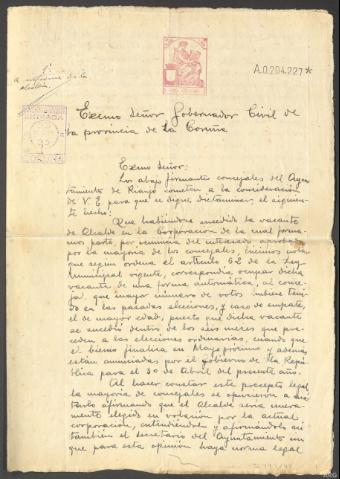 A.0.204.227*
Excmo Señor Gobernador Civil de
la provincia de La Coruña
Excmo Señor:
Los abajo firmantes concejales del Ayun-
tamiento de Rianjo someten a la consideración
de V.E. para que se digne dictaminar el siguiente
hecho:
Que habiéndose sucedido la vacante
de Alcalde en la Corporación de la cual formamos
parte, por renuncia del interesado aprobada
por la mayoría de los concejales, hicimos notar
que según ordena el artículo 62 de la ley
Municipal vigente, correspondía ocupar dicha
vacante de una forma automática, al conce-
jal, que mayor número de votos hubiese teni-
do en las pasadas elecciones, y caso de empate,
el de mayor edad, puesto que dicha vacante
se sucedió dentro de los seis meses que pre-
ceden a las elecciones ordinarias, cuando que
el bienio finaliza en Mayo próximo y además
están anunciadas por el Gobierno de la Repú-
blica para el 30 de Abril del presente año.
Al hacer constar este precepto legal,
la mayoría de concejales se opusieron a
afirmando que el Alcalde sería nueva-
mente elegido en votación por la actual
corporación, entendiendo y afirmándolo así
también el secretario del Ayuntamiento sin
que para esta opinión haya norma legal